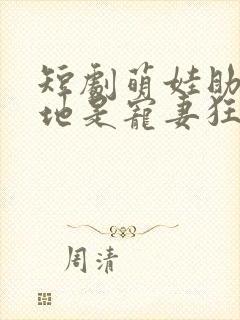 短劇萌娃助
地是寵妻狂
周清